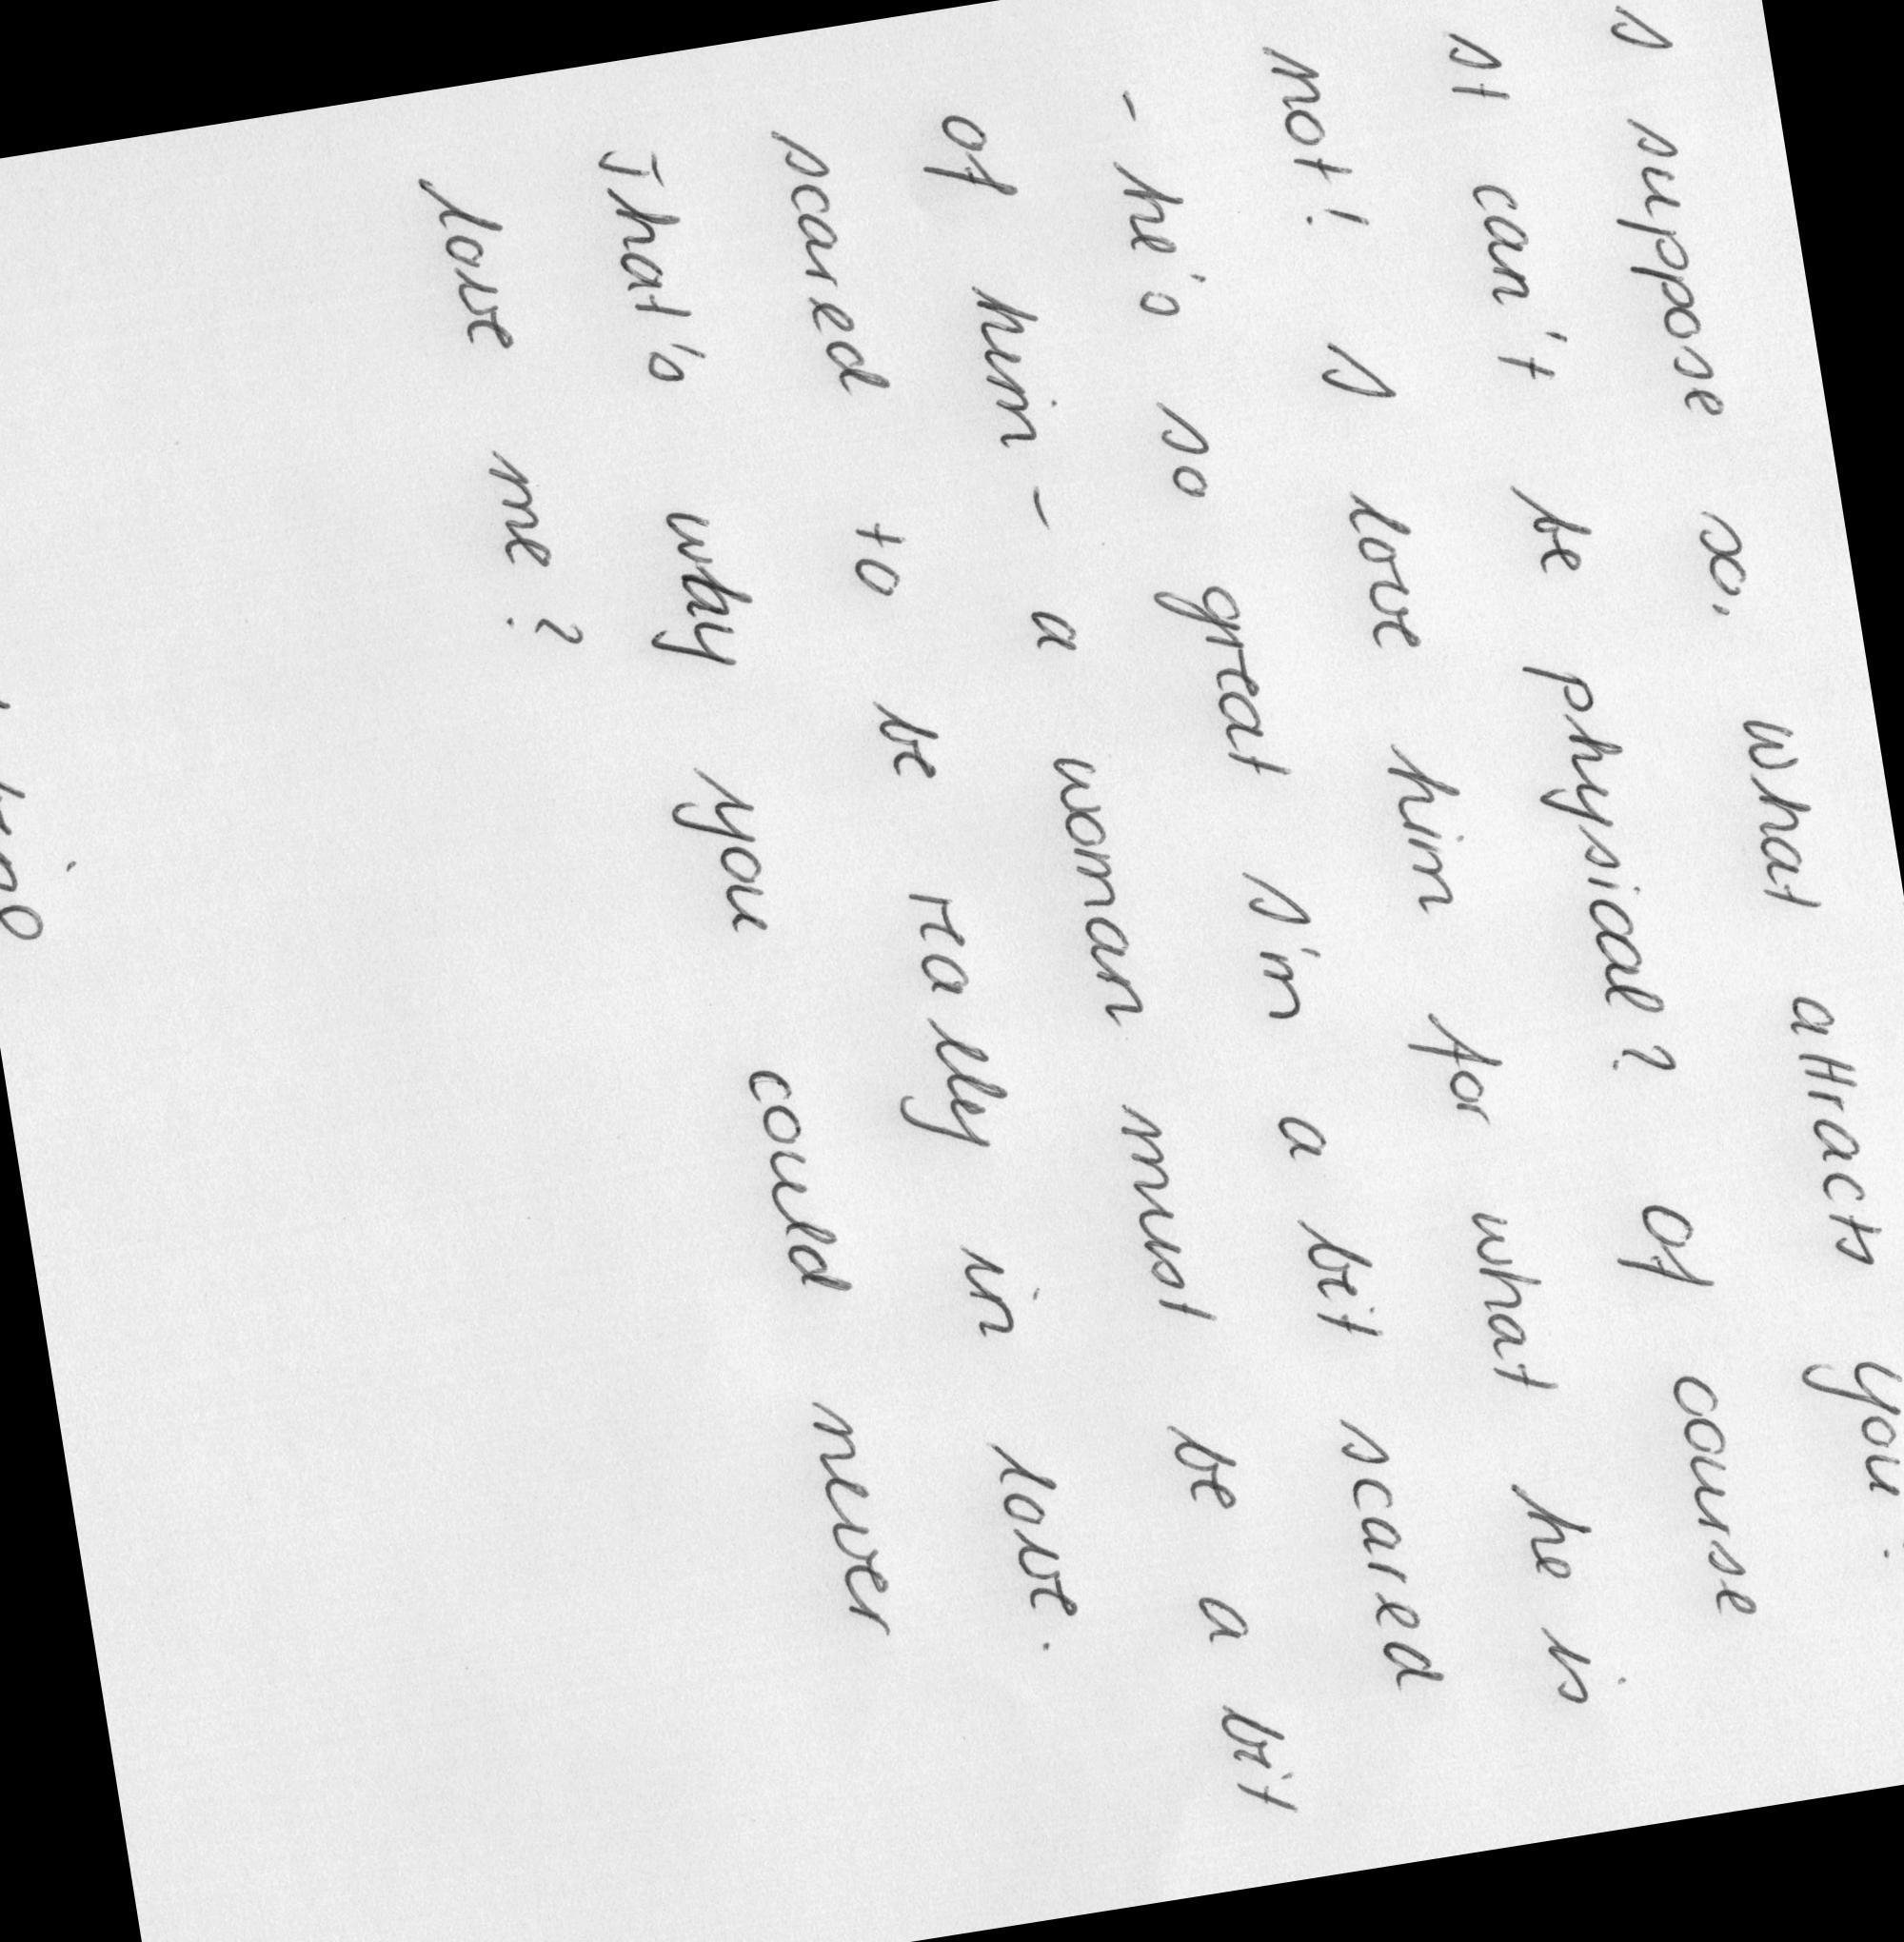 I suppose so. What attracts you?
It can't be physical? Of course
not! I love him for what he is
- he's so great I'm a bit scared
of him - a woman must be a bit
scared to be really in love.
That's why you could never
love me?